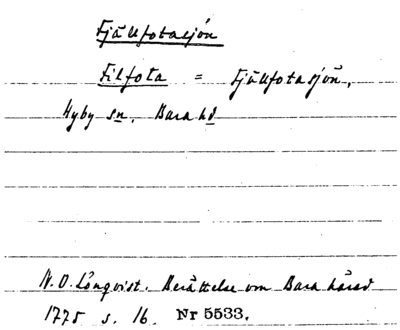 Fjällfotasjön
Filfota = Fjällfotasjön,
Hyby sn. Bara hd
N. O. Lönqvist. Berättelse om Bara härad
1775 s. 16. Nr 5533.